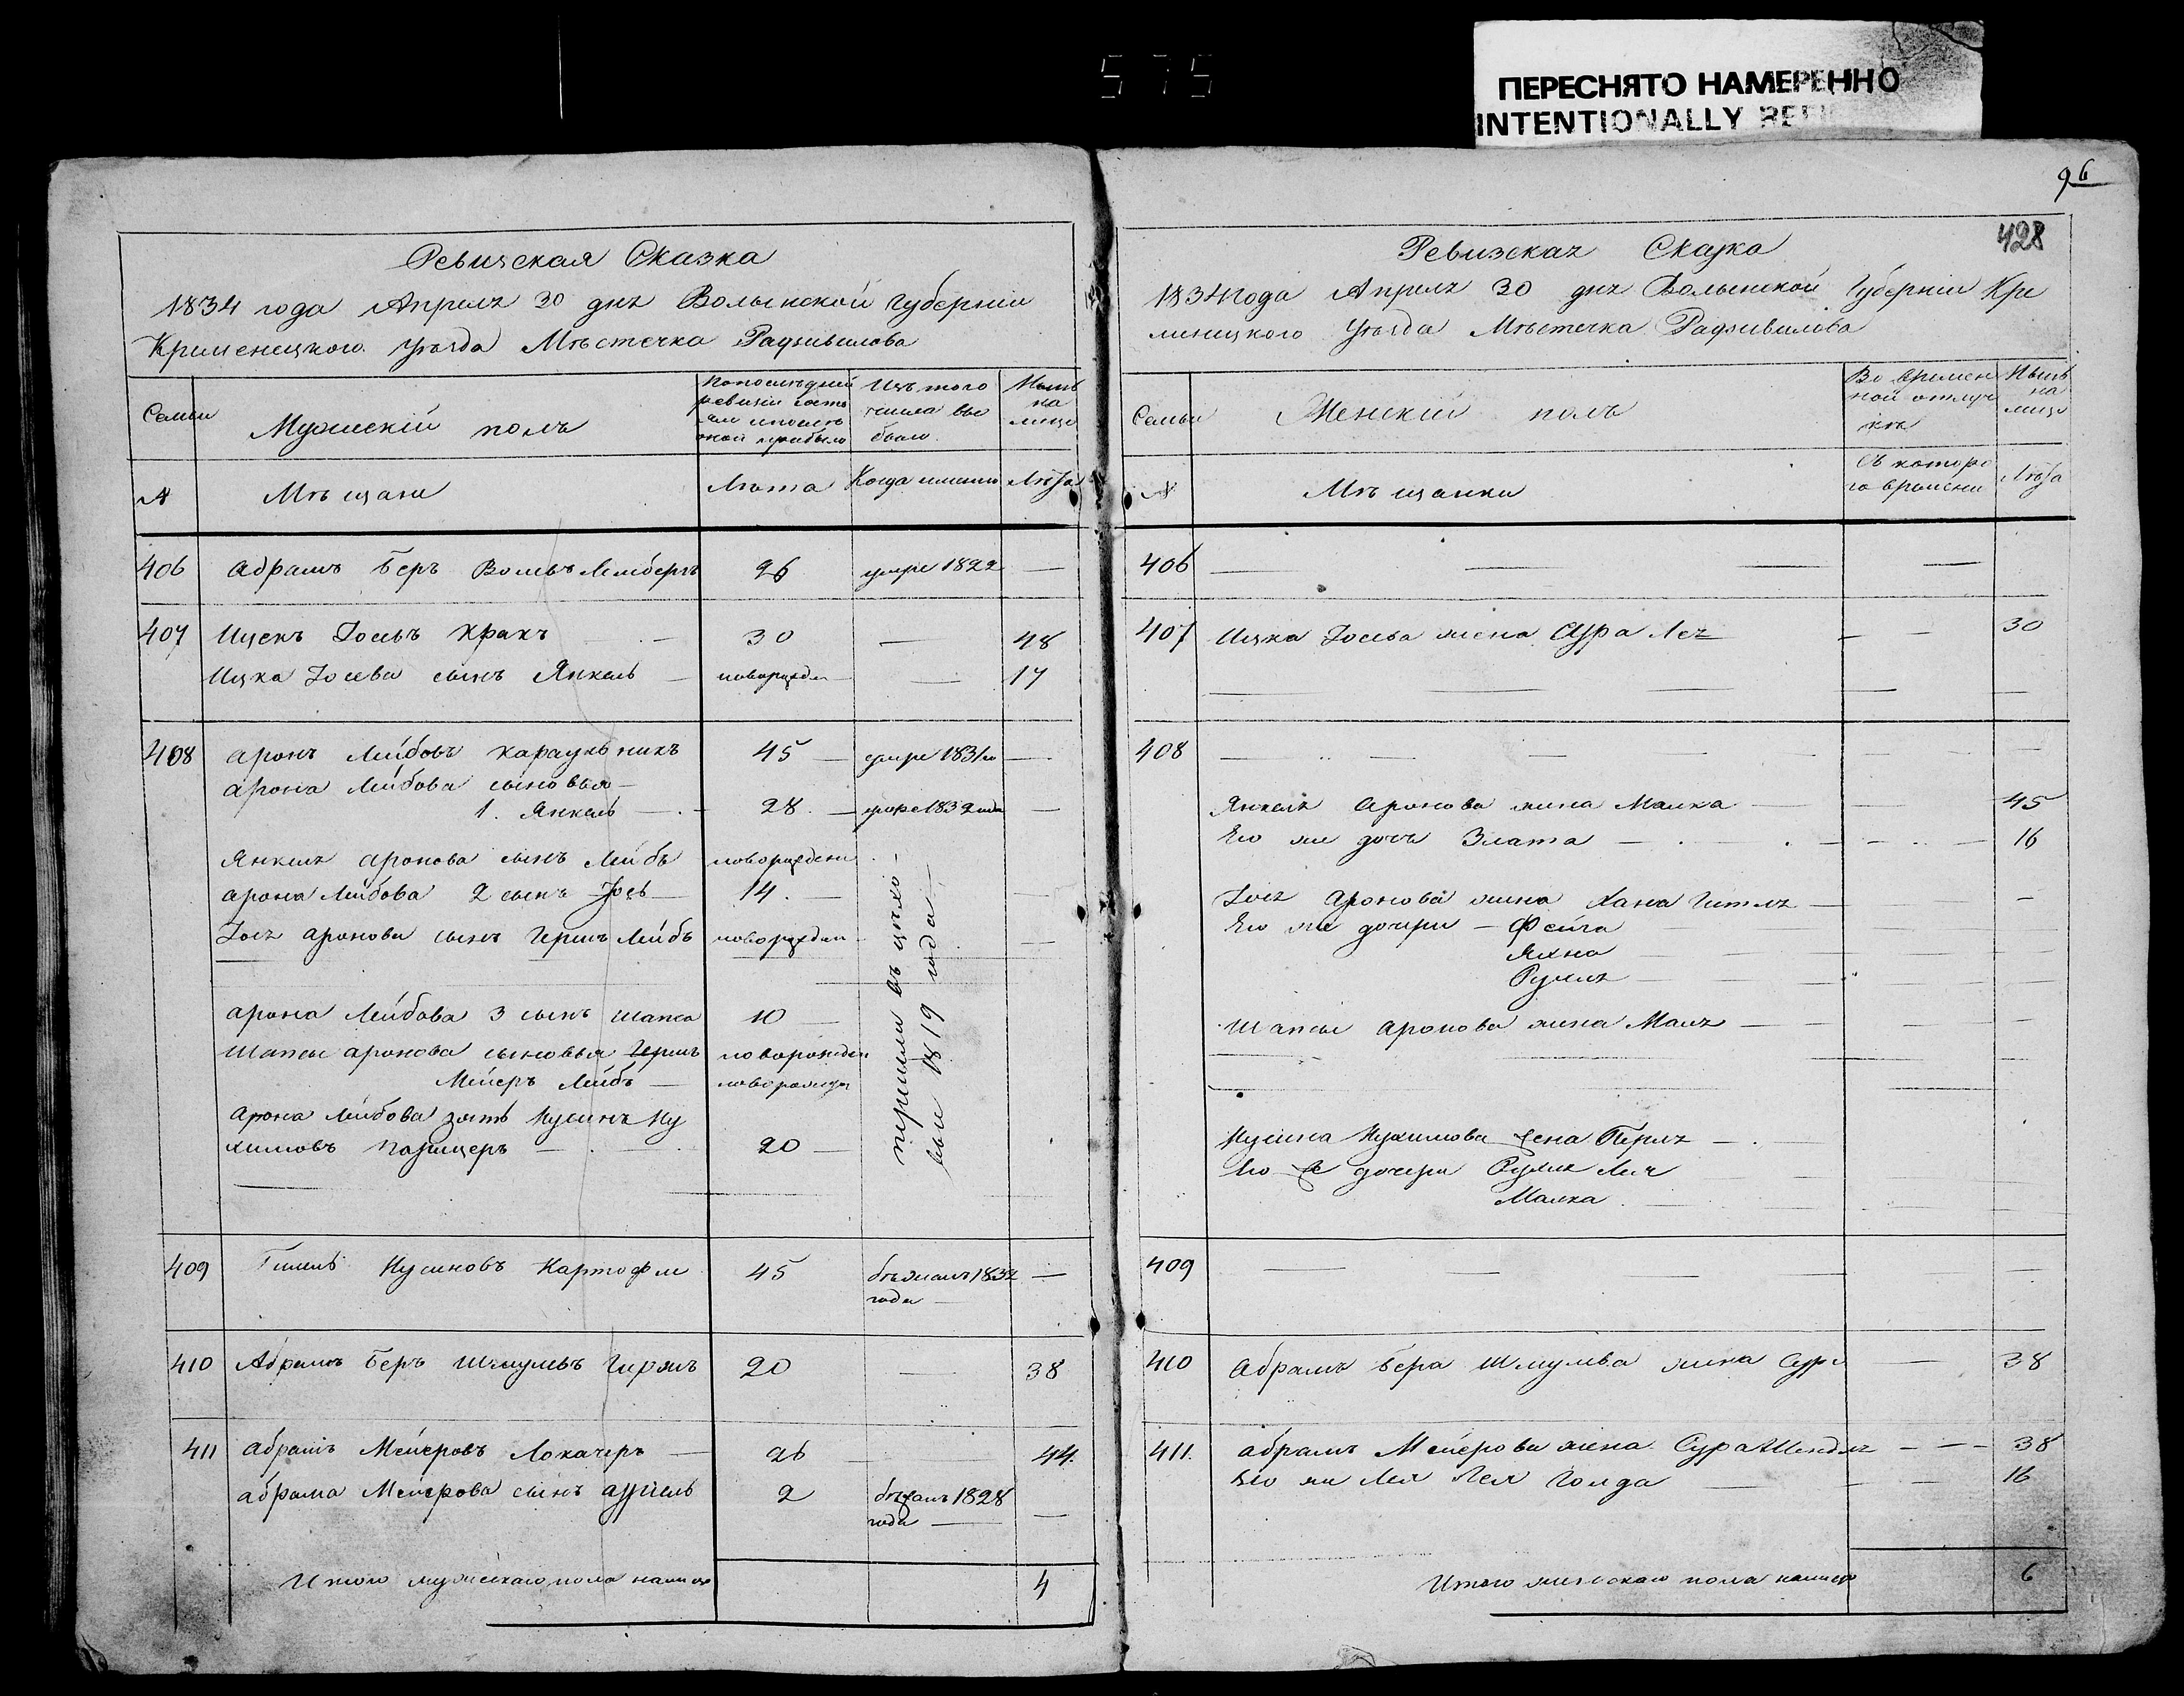 575
ПЕРЕСНЯТО НАМЕРЕННО
INTENTIONALLY
96
Ревизская Сказка
1834 года Апреля 30 дня Волынской губернiи
Кременецкого Уѣзда Мѣстечка Радзивилова
Семьи
Мужескiй полъ
Изъ того числа выбыло
Нынѣ на лицо
№
Мѣщане
Лѣта
Когда именно
Лѣта
406 Абрамъ Беръ Вольвъ Лембергъ 26 умре 1822 —
407 Ицекъ Iосевъ Кракъ — 30 — 48
Ицка Iосева сынъ Янкель — новорожден — 17
408 Аронъ Лейбовъ Караульникъ 45 — умре 1831 —
Арона Лейбова сыновья —
1. Янкель — 28 — умре 1832 года —
Янкеля Аронова сынъ Лейбъ новорожден
Арона Лейбова 2 сынъ Iось — 14 —
Iося Аронова сынъ Гершъ Лейбъ новорожден
Арона Лейбова 3 сынъ Шапса 10 —
Шапсы Аронова сыновья Гершъ новорожден
Мейеръ Лейбъ — новорожден
Арона Лейбова зять Нусинъ Ну
химовъ 20 —
1819 года —
409 Нусиновъ Картофли 45 бѣжалъ 1832 —
года —
410 Абрамъ Беръ Шмулевъ 20 — 38
411 Абрамъ Мейеровъ Локачеръ — 26 — 44.
Абрама Мейерова сынъ 2 бѣжалъ 1828 —
года —
Итого мужескаго пола налицо 4
428
Ревизская Сказка
1834 года Апреля 30 дня Волынской Губернiи Кре
менецкого Уѣзда Мѣстечка Радзивилова
Семьи
Женскiй полъ
Во времен
ной отлуч
кѣ
Нынѣ
на
лицо
№
Мѣщанки
Съ которо
го времени
Лѣта
406 — — —
407 Ицка Iосева жена Сура Лея — — 30
408 — — —
Янкеля Аронова жена Малка — 45
Его же дочь Злата — 16
Iося Аронова жена Хана Гитля —
Его же дочери — Фейга
Яхна
Рухля
Шапсы Аронова жена Маля —
Нусина Нухимова жена Перля —
Его же дочери Рухля Лея
Малка
409 — — —
410 Абрама Бера Шмулева жена Сура — 38
411. Абрама Мейерова жена Сура Шендля — 38
Его же Лея Голда — 16
Итого женскаго пола налицо 6